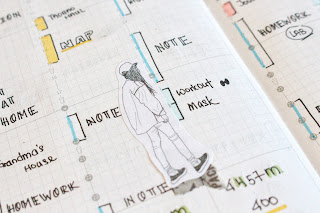 NAP
NOTE
HOMEWORK
LAB
AT
HOME
NOTE
workout
Mask
Grandma's
House
HOMEWORK
NOTE
4457m
400